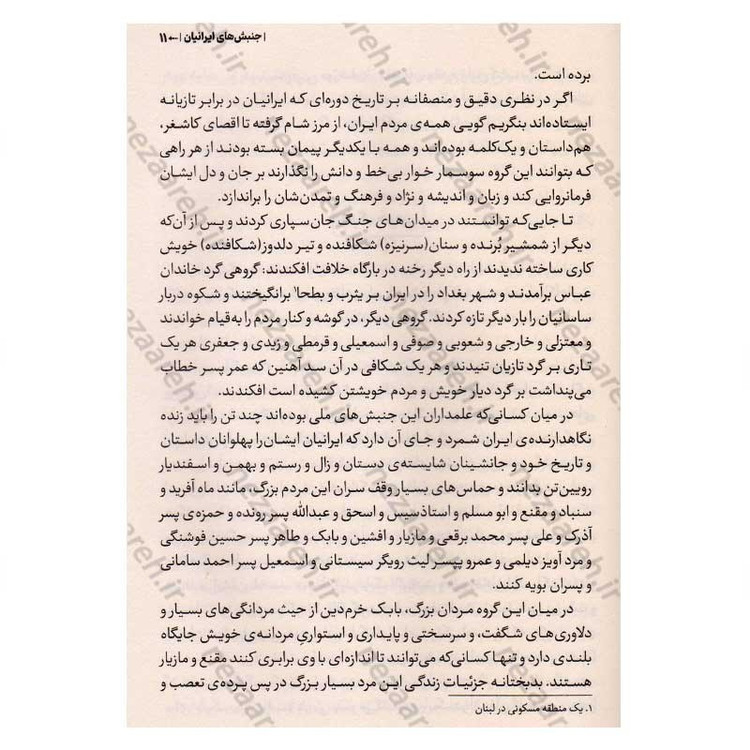 | جنبش‌های ایرانیان | ← ۱۱
برده است.
اگر در نظری دقیق و منصفانه بر تاریخ دوره‌ای که ایرانیان در برابر تازیانه
ایستاده‌اند بنگریم گویی همه‌ی مردم ایران، از مرز شام گرفته تا اقصای کاشغر،
هم‌داستان و یک‌کلمه بوده‌اند و همه با یکدیگر پیمان بسته بودند از هر راهی
که بتوانند این گروه سوسمار خوار بی‌خط و دانش را نگذارند بر جان و دل ایشان
فرمانروایی کند و زبان و اندیشه و نژاد و فرهنگ و تمدن‌شان را براندازد.
تا جایی‌که توانستند در میدان‌های جنگ جان‌سپاری کردند و پس از آن‌که
دیگر از شمشیر بُرنده و سنان(سرنیزه) شکافنده و تیر دلدوز(شکافنده) خویش
کاری ساخته ندیدند از راه دیگر رخنه در بارگاه خلافت افکندند: گروهی گرد خاندان
عباس برآمدند و شهر بغداد را در ایران بر یثرب و بطحا۱ برانگیختند و شکوه دربار
ساسانیان را بار دیگر تازه کردند. گروهی دیگر، در گوشه و کنار مردم را به‌قیام خواندند
و معتزلی و خارجی و شعوبی و صوفی و اسمعیلی و قرمطی و زیدی و جعفری هر یک
تاری بر گرد تازیان تنیدند و هر یک شکافی در آن سد آهنین که عمر پسر خطاب
می‌پنداشت بر گرد دیار خویش و مردم خویشتن کشیده است افکندند.
در میان کسانی‌که علمداران این جنبش‌های ملی بوده‌اند چند تن را باید زنده
نگاهدارنده‌ی ایران شمرد و جای آن دارد که ایرانیان ایشان‌را پهلوانان داستان
و تاریخ خود و جانشینان شایسته‌ی دستان و زال و رستم و بهمن و اسفندیار
رویین‌تن بدانند و حماس‌های بسیار وقف سران این مردم بزرگ، مانند ماه آفرید و
سنباد و مقنع و ابو مسلم و استاذسیس و اسحق و عبدالله پسر رونده و حمزه‌ی پسر
آذرک و علی پسر محمد برقعی و مازیار و افشین و بابک و طاهر پسر حسین فوشنگی
و مرد آویز دیلمی و عمرو یپسر لیث رویگر سیستانی و اسمعیل پسر احمد سامانی
و پسران بویه کنند.
در میان این گروه مردان بزرگ، بابک خرم‌دین از حیث مردانگی‌های بسیار و
دلاوری‌های شگفت، و سرسختی و پایداری و استواریِ مردانه‌ی خویش جایگاه
بلندی دارد و تنها کسانی‌که می‌توانند تا اندازه‌ای با وی برابری کنند مقنع و مازیار
هستند. بدبختانه جزئیات زندگی این مرد بسیار بزرگ در پس پرده‌ی تعصب و
۱. یک منطقه مسکونی در لبنان
nezaareh.ir